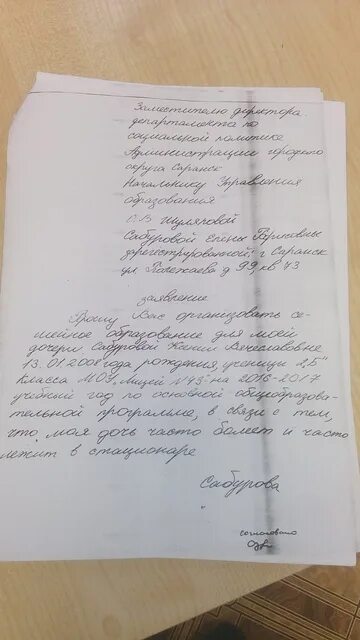 Заместителю директора
департамента по
социальной политике
Администрации городского
округа Саранск
Начальнику Управления
образования
Шуляповой
Сабуровой Елены
зарегистрированной: г Саранск
ул д 99 кв 43
заявление
Прошу Вас организовать се-
мейное образование для моей
дочери Сабуровой Ксении Вячеславовне
13.01.2008 года рождения, ученицы 2,,Б"
класса МОУ,, Лицей №43" на 2016-2017
учебный год по основной общеобразова-
тельной программе, в связи с тем,
что моя дочь часто болеет и часто
лежит в стационаре
Сабурова
согласовано